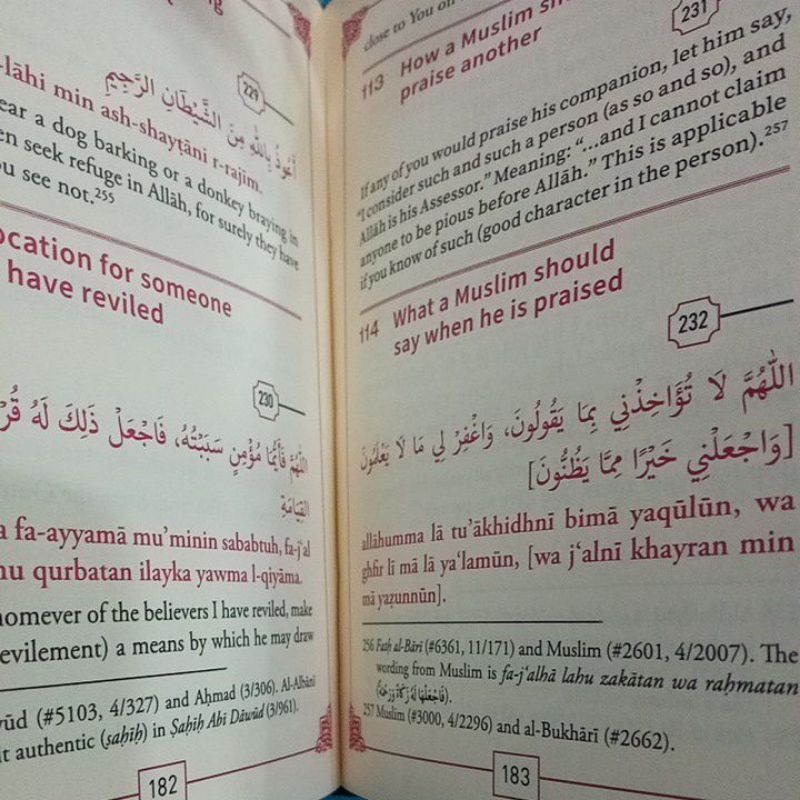 229
أَعُوذُ بِاللهِ مِنَ الشَّيْطَانِ الرَّجِيمِ
-lāhi min ash-shayṭāni r-rajīm.
ear a dog barking or a donkey braying in
en seek refuge in Allāh, for surely they have
ou see not.255
ocation for someone
have reviled
230
اللهُمَّ فَأَيُّمَا مُؤْمِنٍ سَبَبْتُهُ، فَاجْعَلْ ذَلِكَ لَهُ
القِيَامَةِ
a fa-ayyamā mu’minin sababtuh, fa-j‘al
hu qurbatan ilayka yawma l-qiyāma.
homever of the believers I have reviled, make
evilement) a means by which he may draw
wūd (#5103, 4/327) and Aḥmad (3/306). Al-Albānī
it authentic (ṣaḥīḥ) in Ṣaḥīḥ Abī Dāwūd (3/961).
182
close to You on
113 How a Muslim
praise another
231
If any of you would praise his companion, let him say,
“I consider such and such a person (as so and so), and
Allāh is his Assessor.” Meaning: “...and I cannot claim
anyone to be pious before Allāh.” This is applicable
if you know of such (good character in the person).257
114 What a Muslim should
say when he is praised
232
اللَّهُمَّ لَا تُؤَاخِذْنِي بِمَا يَقُولُونَ، وَاغْفِرْ لِي مَا لَا يَعْلَمُونَ
[وَاجْعَلْنِي خَيْرًا مِمَّا يَظُنُّونَ]
allāhumma lā tu’ākhidhnī bimā yaqūlūn, wa
ghfir lī mā lā ya‘lamūn, [wa j‘alnī khayran min
mā yaẓunnūn].
256 Fatḥ al-Bārī (#6361, 11/171) and Muslim (#2601, 4/2007). The
wording from Muslim is fa-j‘alhā lahu zakātan wa raḥmatan
(فَاجْعَلْهَا لَهُ زَكَاةً وَرَحْمَةً).
257 Muslim (#3000, 4/2296) and al-Bukhārī (#2662).
183